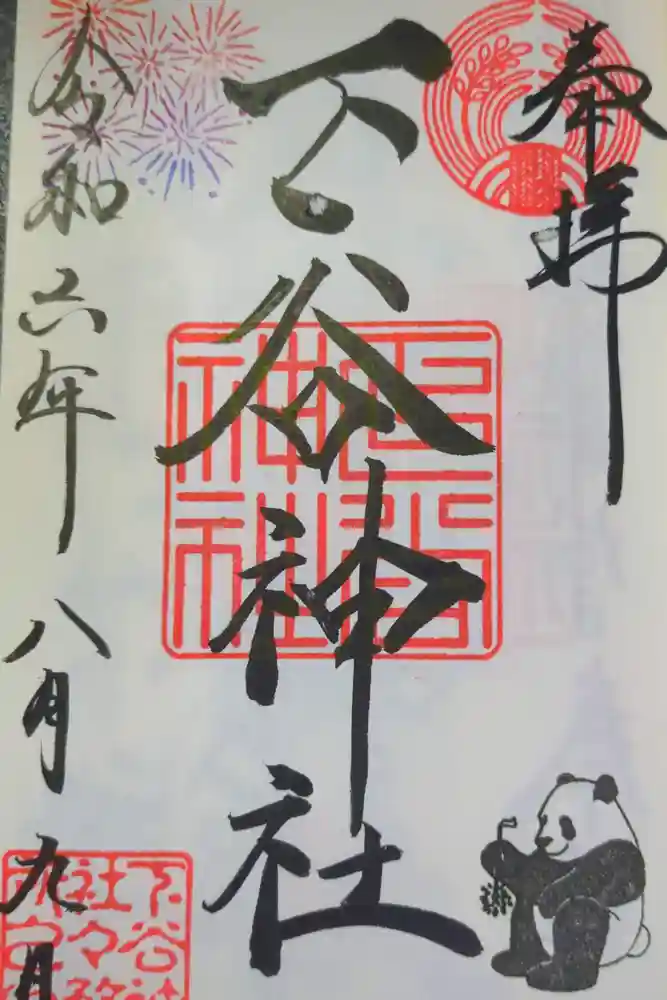 奉拝
下谷神社
令和六年八月九日
下谷神社
下谷神
社々務